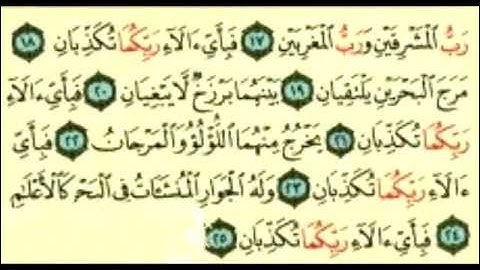 رَبُّ الْمَشْرِقَيْنِ وَرَبُّ الْمَغْرِبَيْنِ ١٧ فَبِأَيِّ ءَالَآءِ رَبِّكُمَا تُكَذِّبَانِ ١٨
مَرَجَ الْبَحْرَيْنِ يَلْتَقِيَانِ ١٩ بَيْنَهُمَا بَرْزَخٌ لَّا يَبْغِيَانِ ٢٠ فَبِأَيِّ ءَالَآءِ
رَبِّكُمَا تُكَذِّبَانِ ٢١ يَخْرُجُ مِنْهُمَا اللُّؤْلُؤُ وَالْمَرْجَانُ ٢٢ فَبِأَيِّ
ءَالَآءِ رَبِّكُمَا تُكَذِّبَانِ ٢٣ وَلَهُ الْجَوَارِ الْمُنشَئَاتُ فِي الْبَحْرِ كَالْأَعْلَامِ
٢٤ فَبِأَيِّ ءَالَآءِ رَبِّكُمَا تُكَذِّبَانِ ٢٥